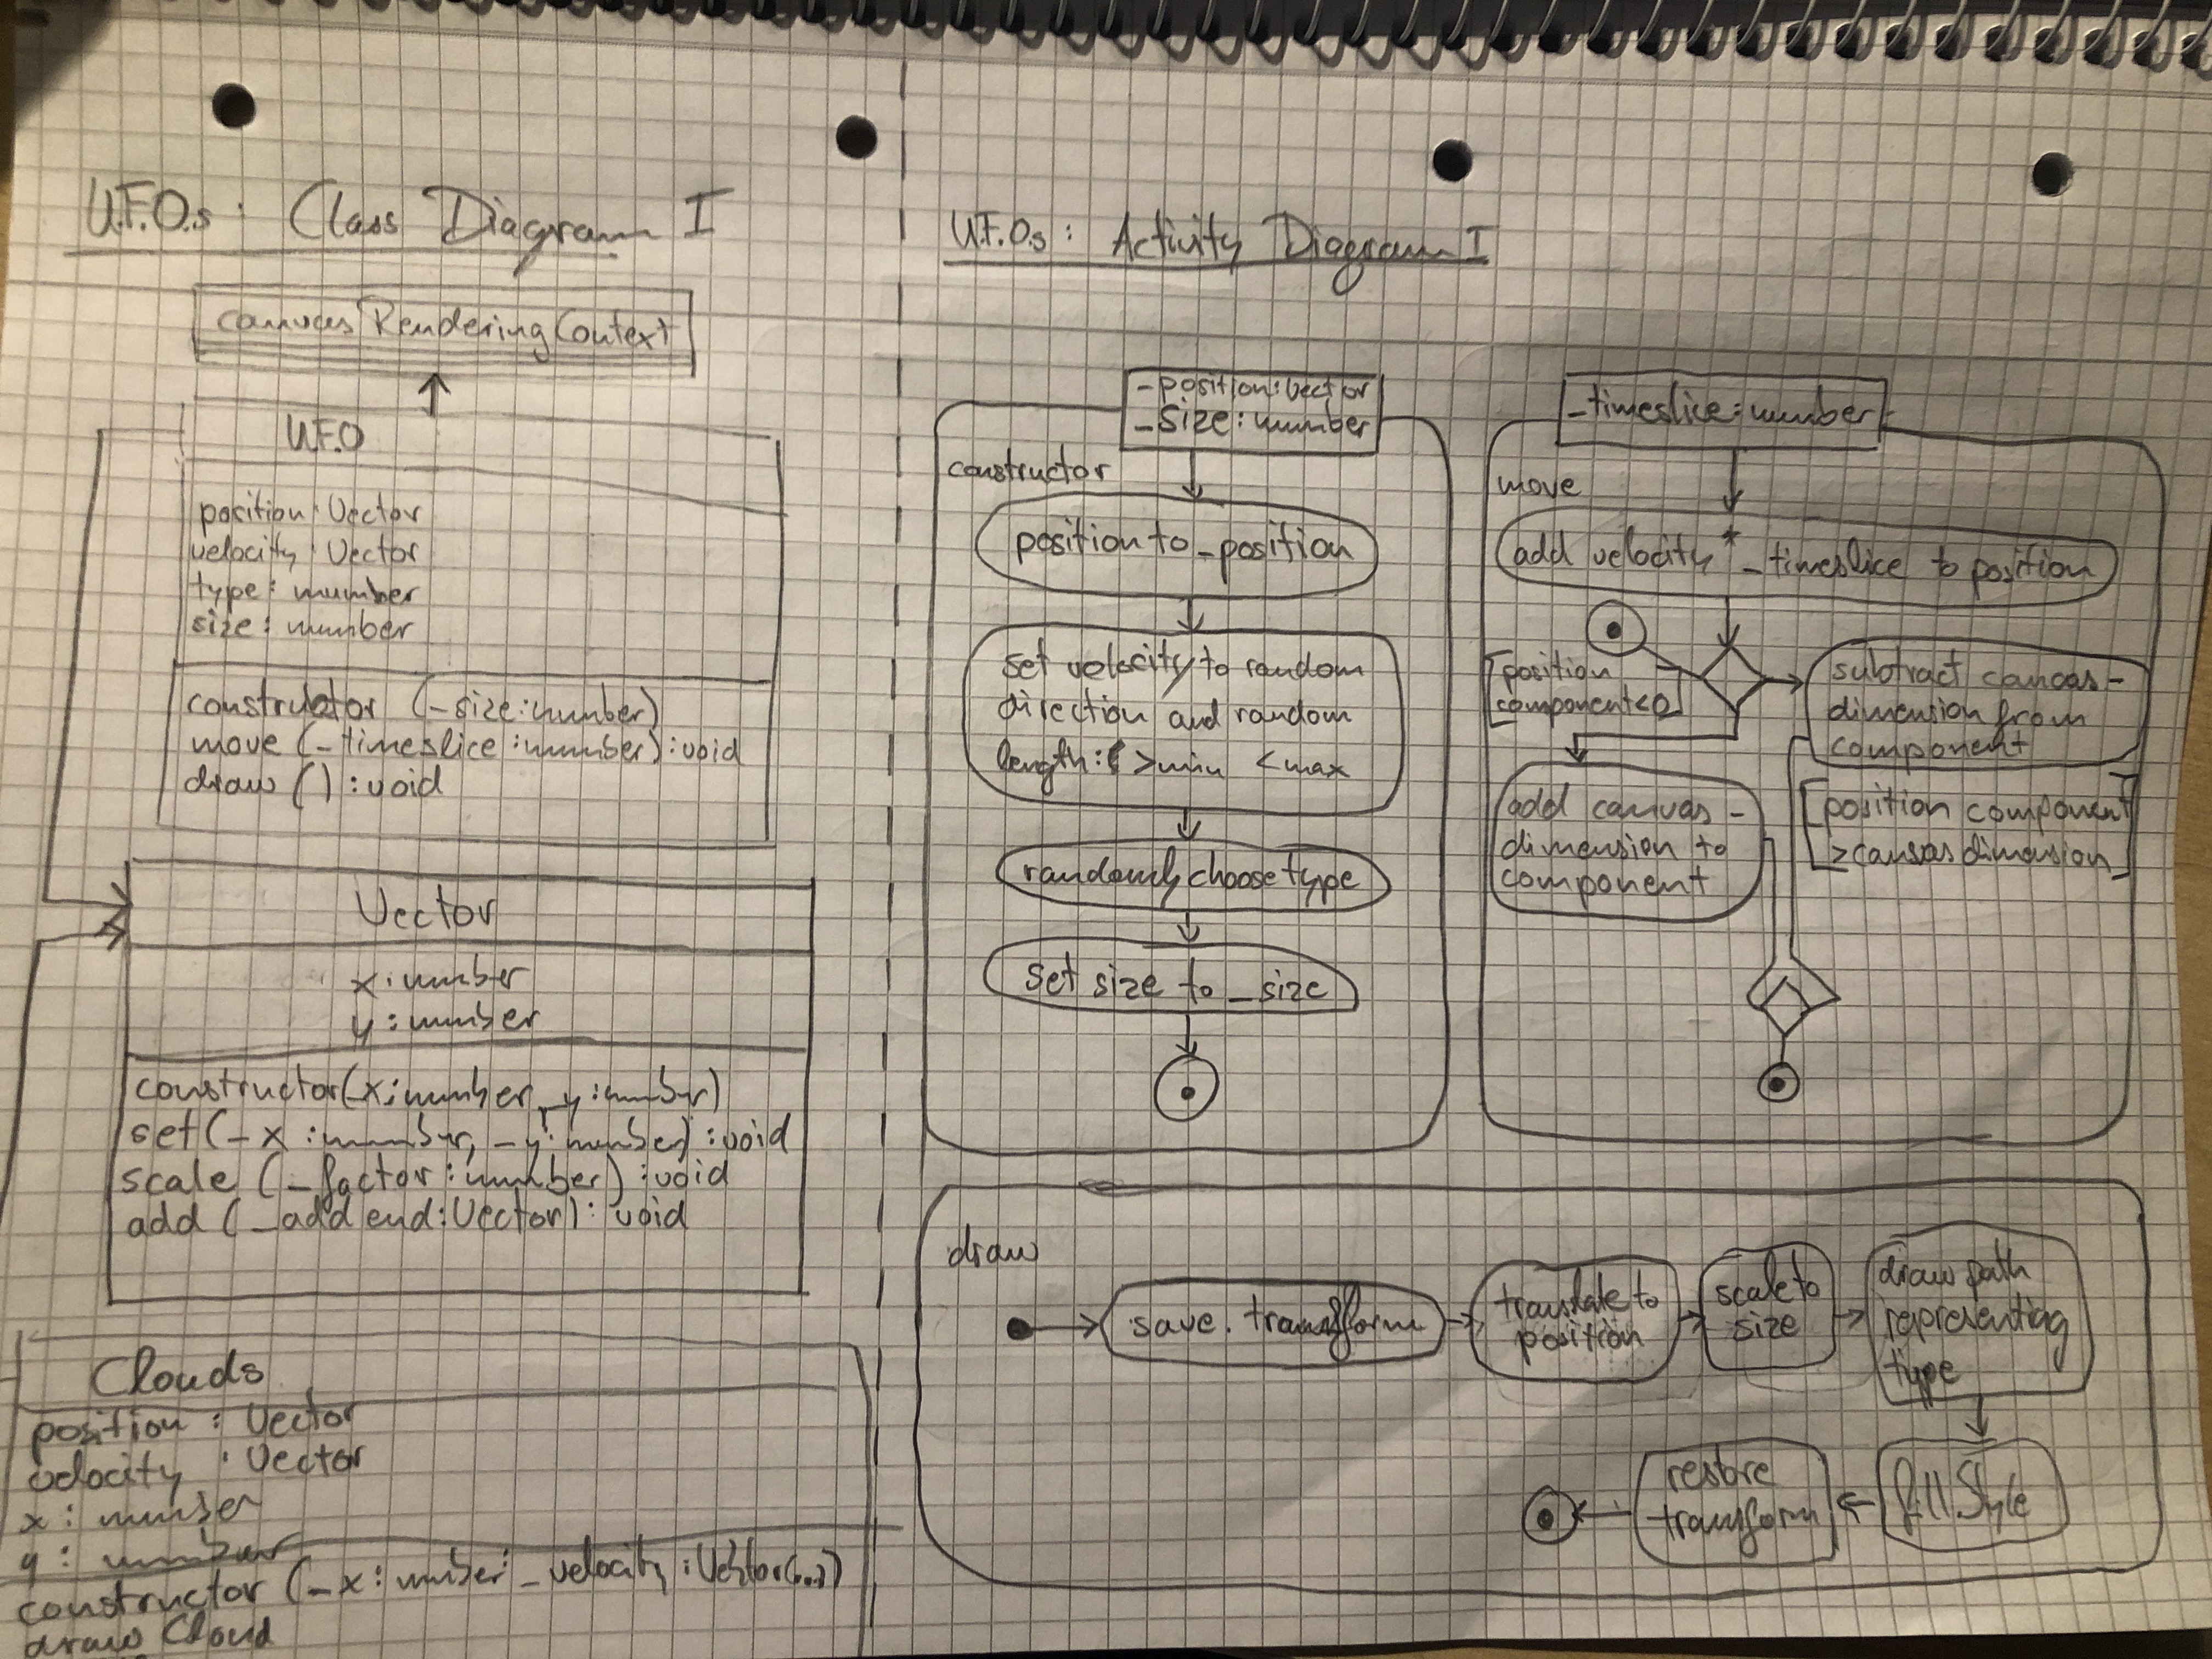 U.F.O.s : Class Diagram I
canvasRenderingContext
U.F.O
position : Vector
velocity : Vector
type : number
size : number
constructor (_size : number)
move (_timeslice : number) : void
draw () : void
Vector
x : number
y : number
constructor (x : number, y : number)
set (_x : number, _y : number) : void
scale (_factor : number) : void
add (_addend : Vector) : void
Clouds
position : Vector
velocity : Vector
x : number
y : number
constructor (_x : number; _velocity :
draw Cloud
U.F.O.s : Activity Diagram I
_position : Vector
_size : number
constructor
position to _position
Set velocity to random
direction and random
length : > min < max
randomly choose type
Set size to _size
_timeslice : number
move
add velocity * _timeslice to position
[position
component<0]
add canvas-
dimension to
component
subtract canvas-
dimension from
component
[position component
>canvas dimension]
draw
save transform
translate to
position
scale to
size
draw path
representing
type
fill Style
restore
transform